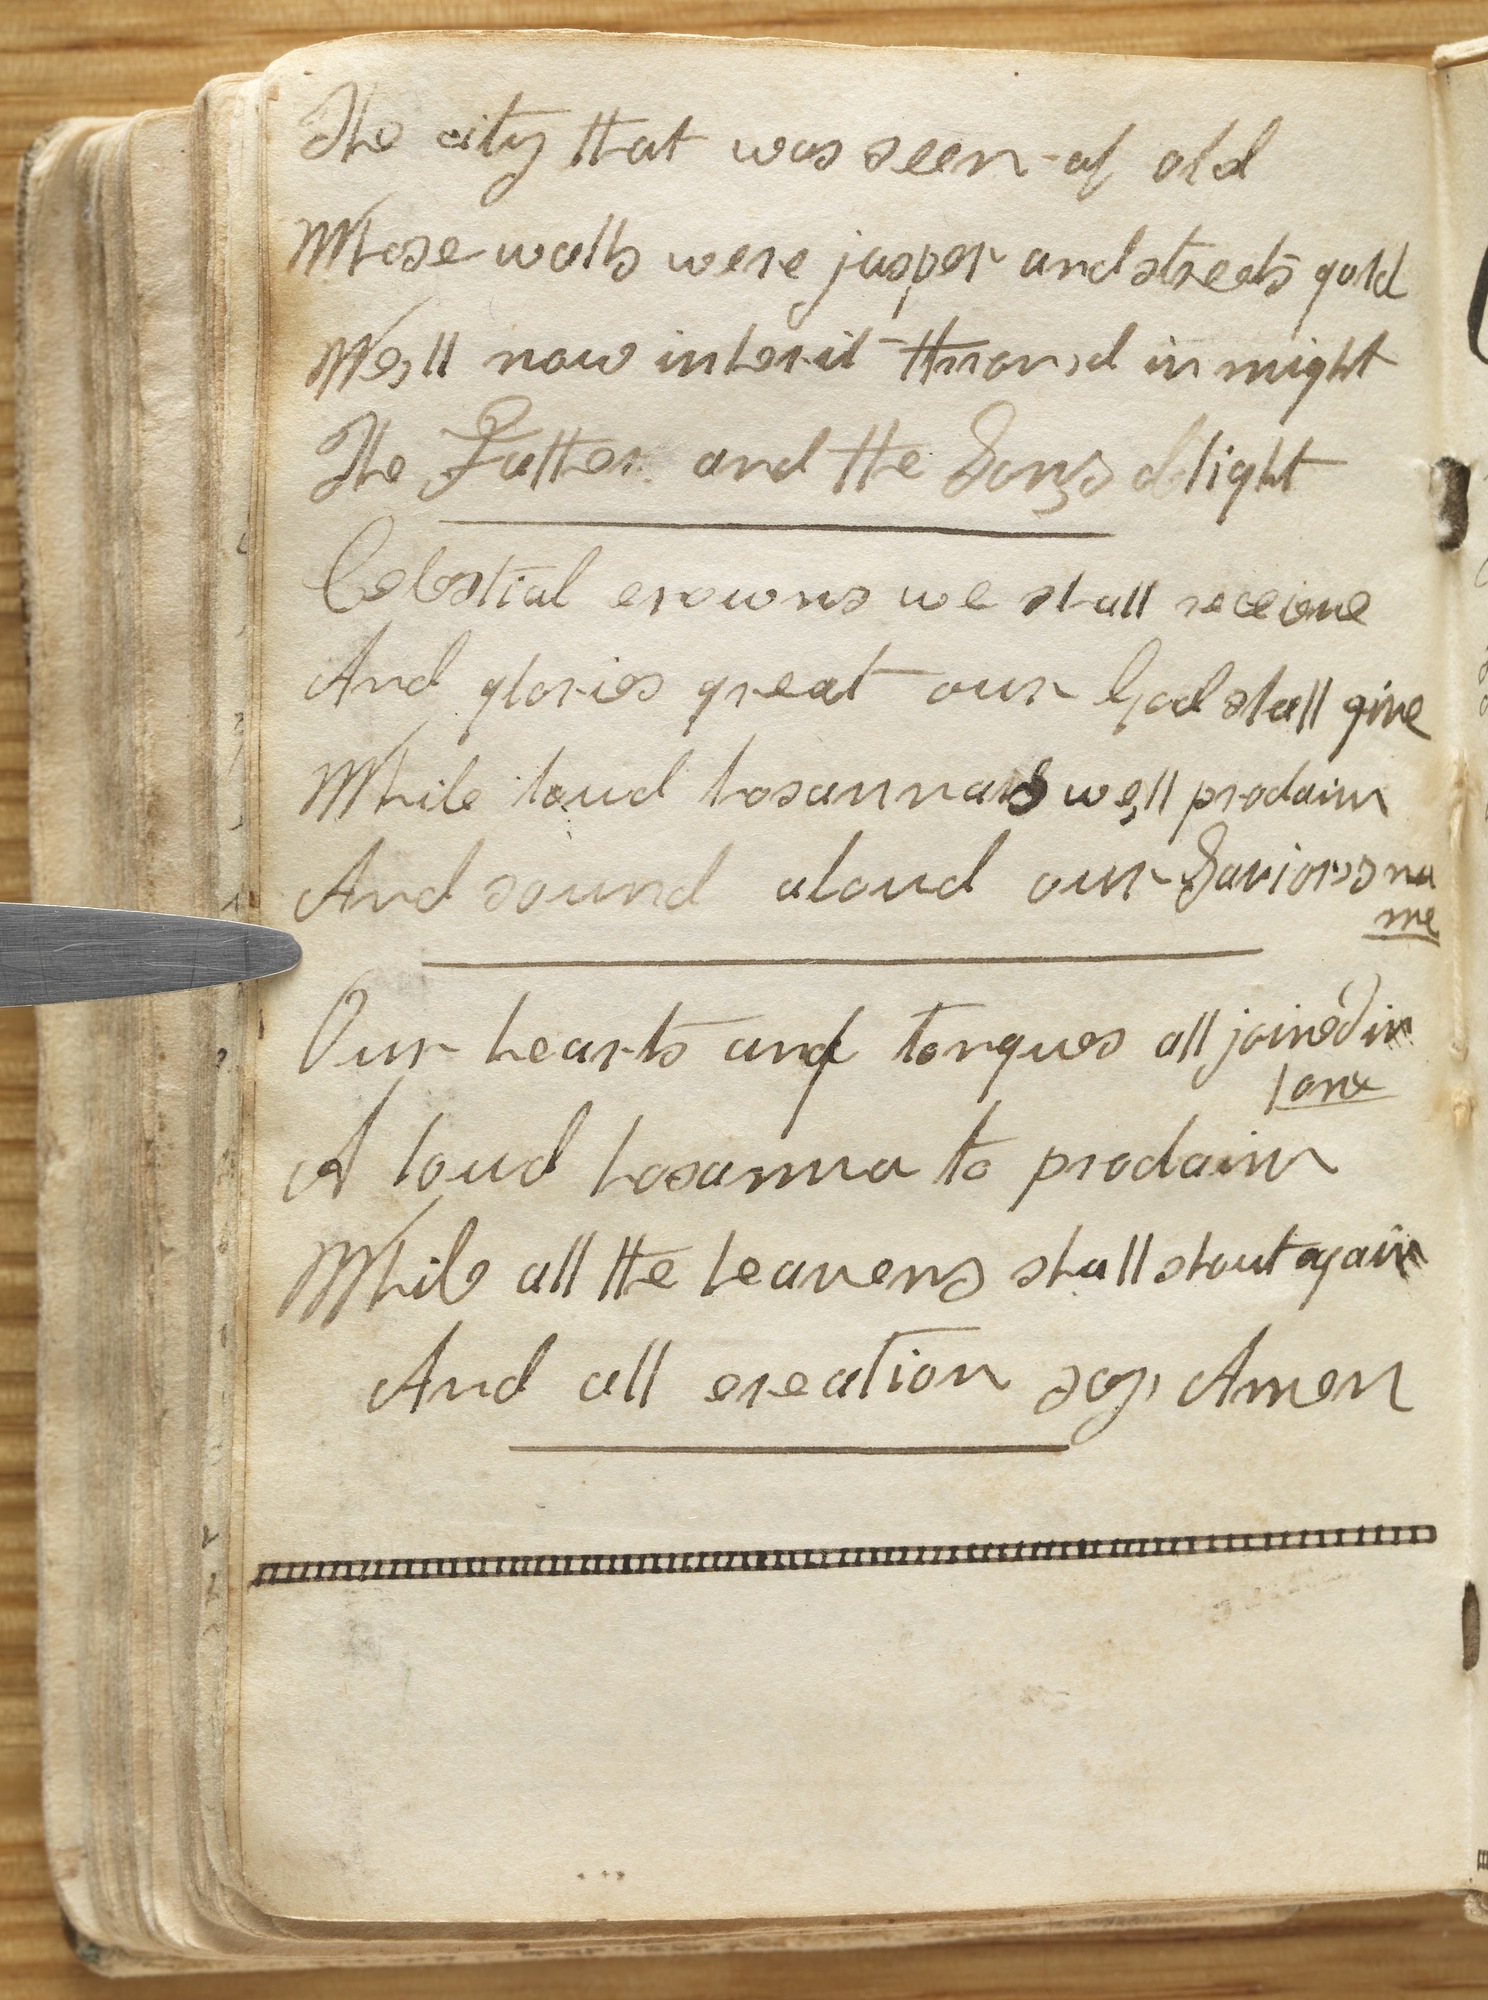 The city that was seen of old
Whose walls were jasper and streets gold
We,ll now inherit thron,d in might
The Father and the Son,s delight
Celestial crowns we shall receive
And glories great our God shall give
While loud hosannas we,ll proclaim
And sound aloud our Savior,s na
me
Our hearts and tongues all joined in
one
A loud hosanna to proclaim
While all the heavens shall shout again
And all creation say, Amen